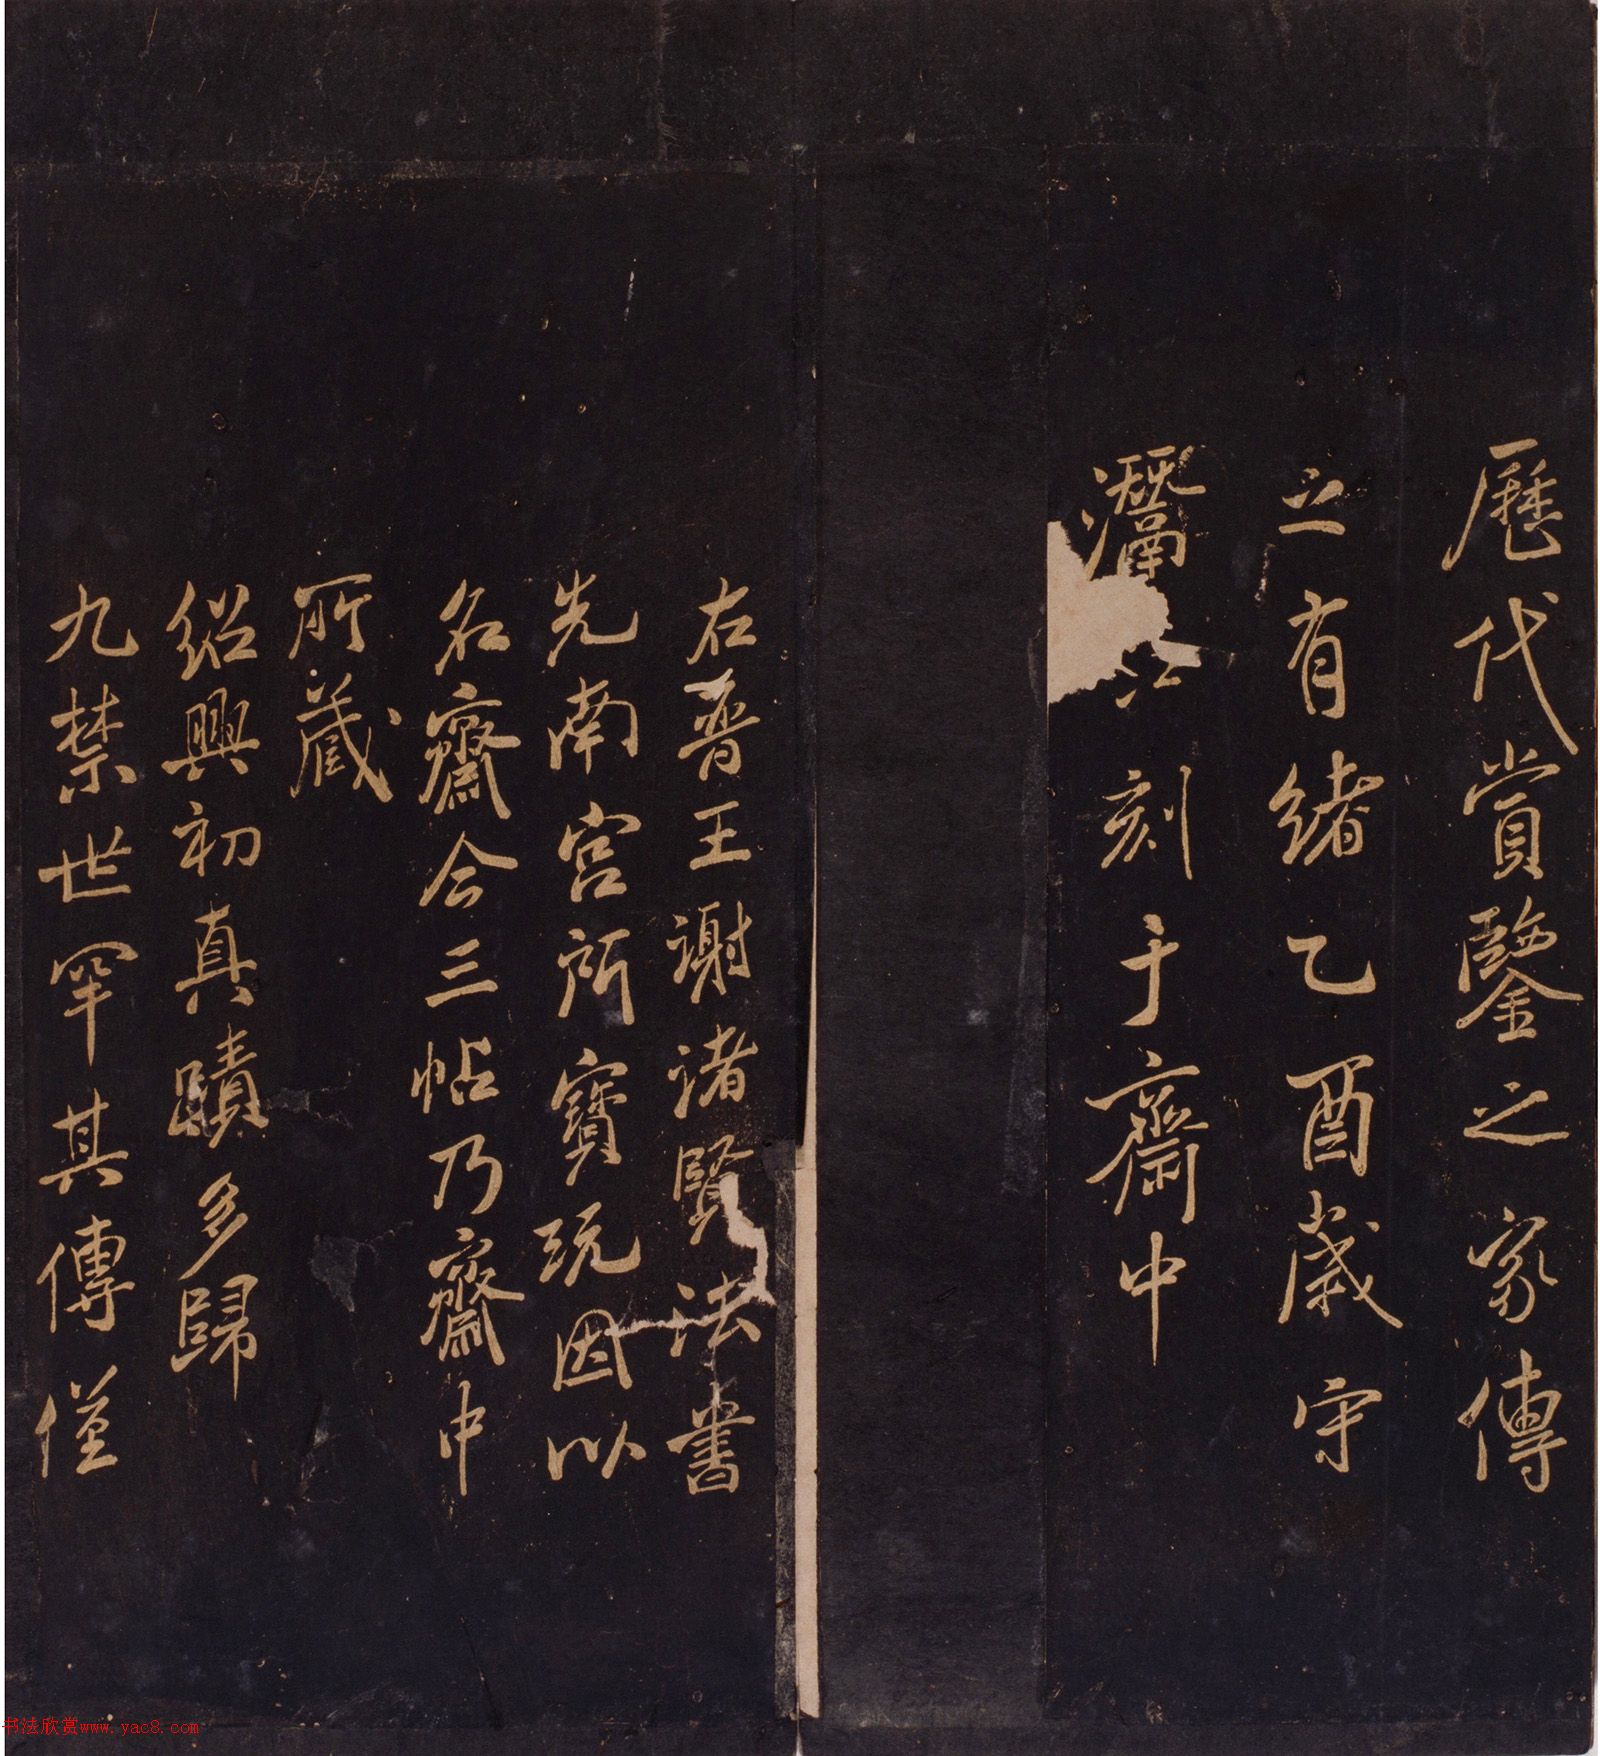 歷代賞鑒之家傳
之有緒乙酉歲守
灊江刻于齋中
右晉王謝諸賢法書
先南宮所寶玩因以
名齋今三帖乃齋中
所藏
紹興初真蹟多歸
九禁世罕其傳僅
书法欣赏www.yac8.com